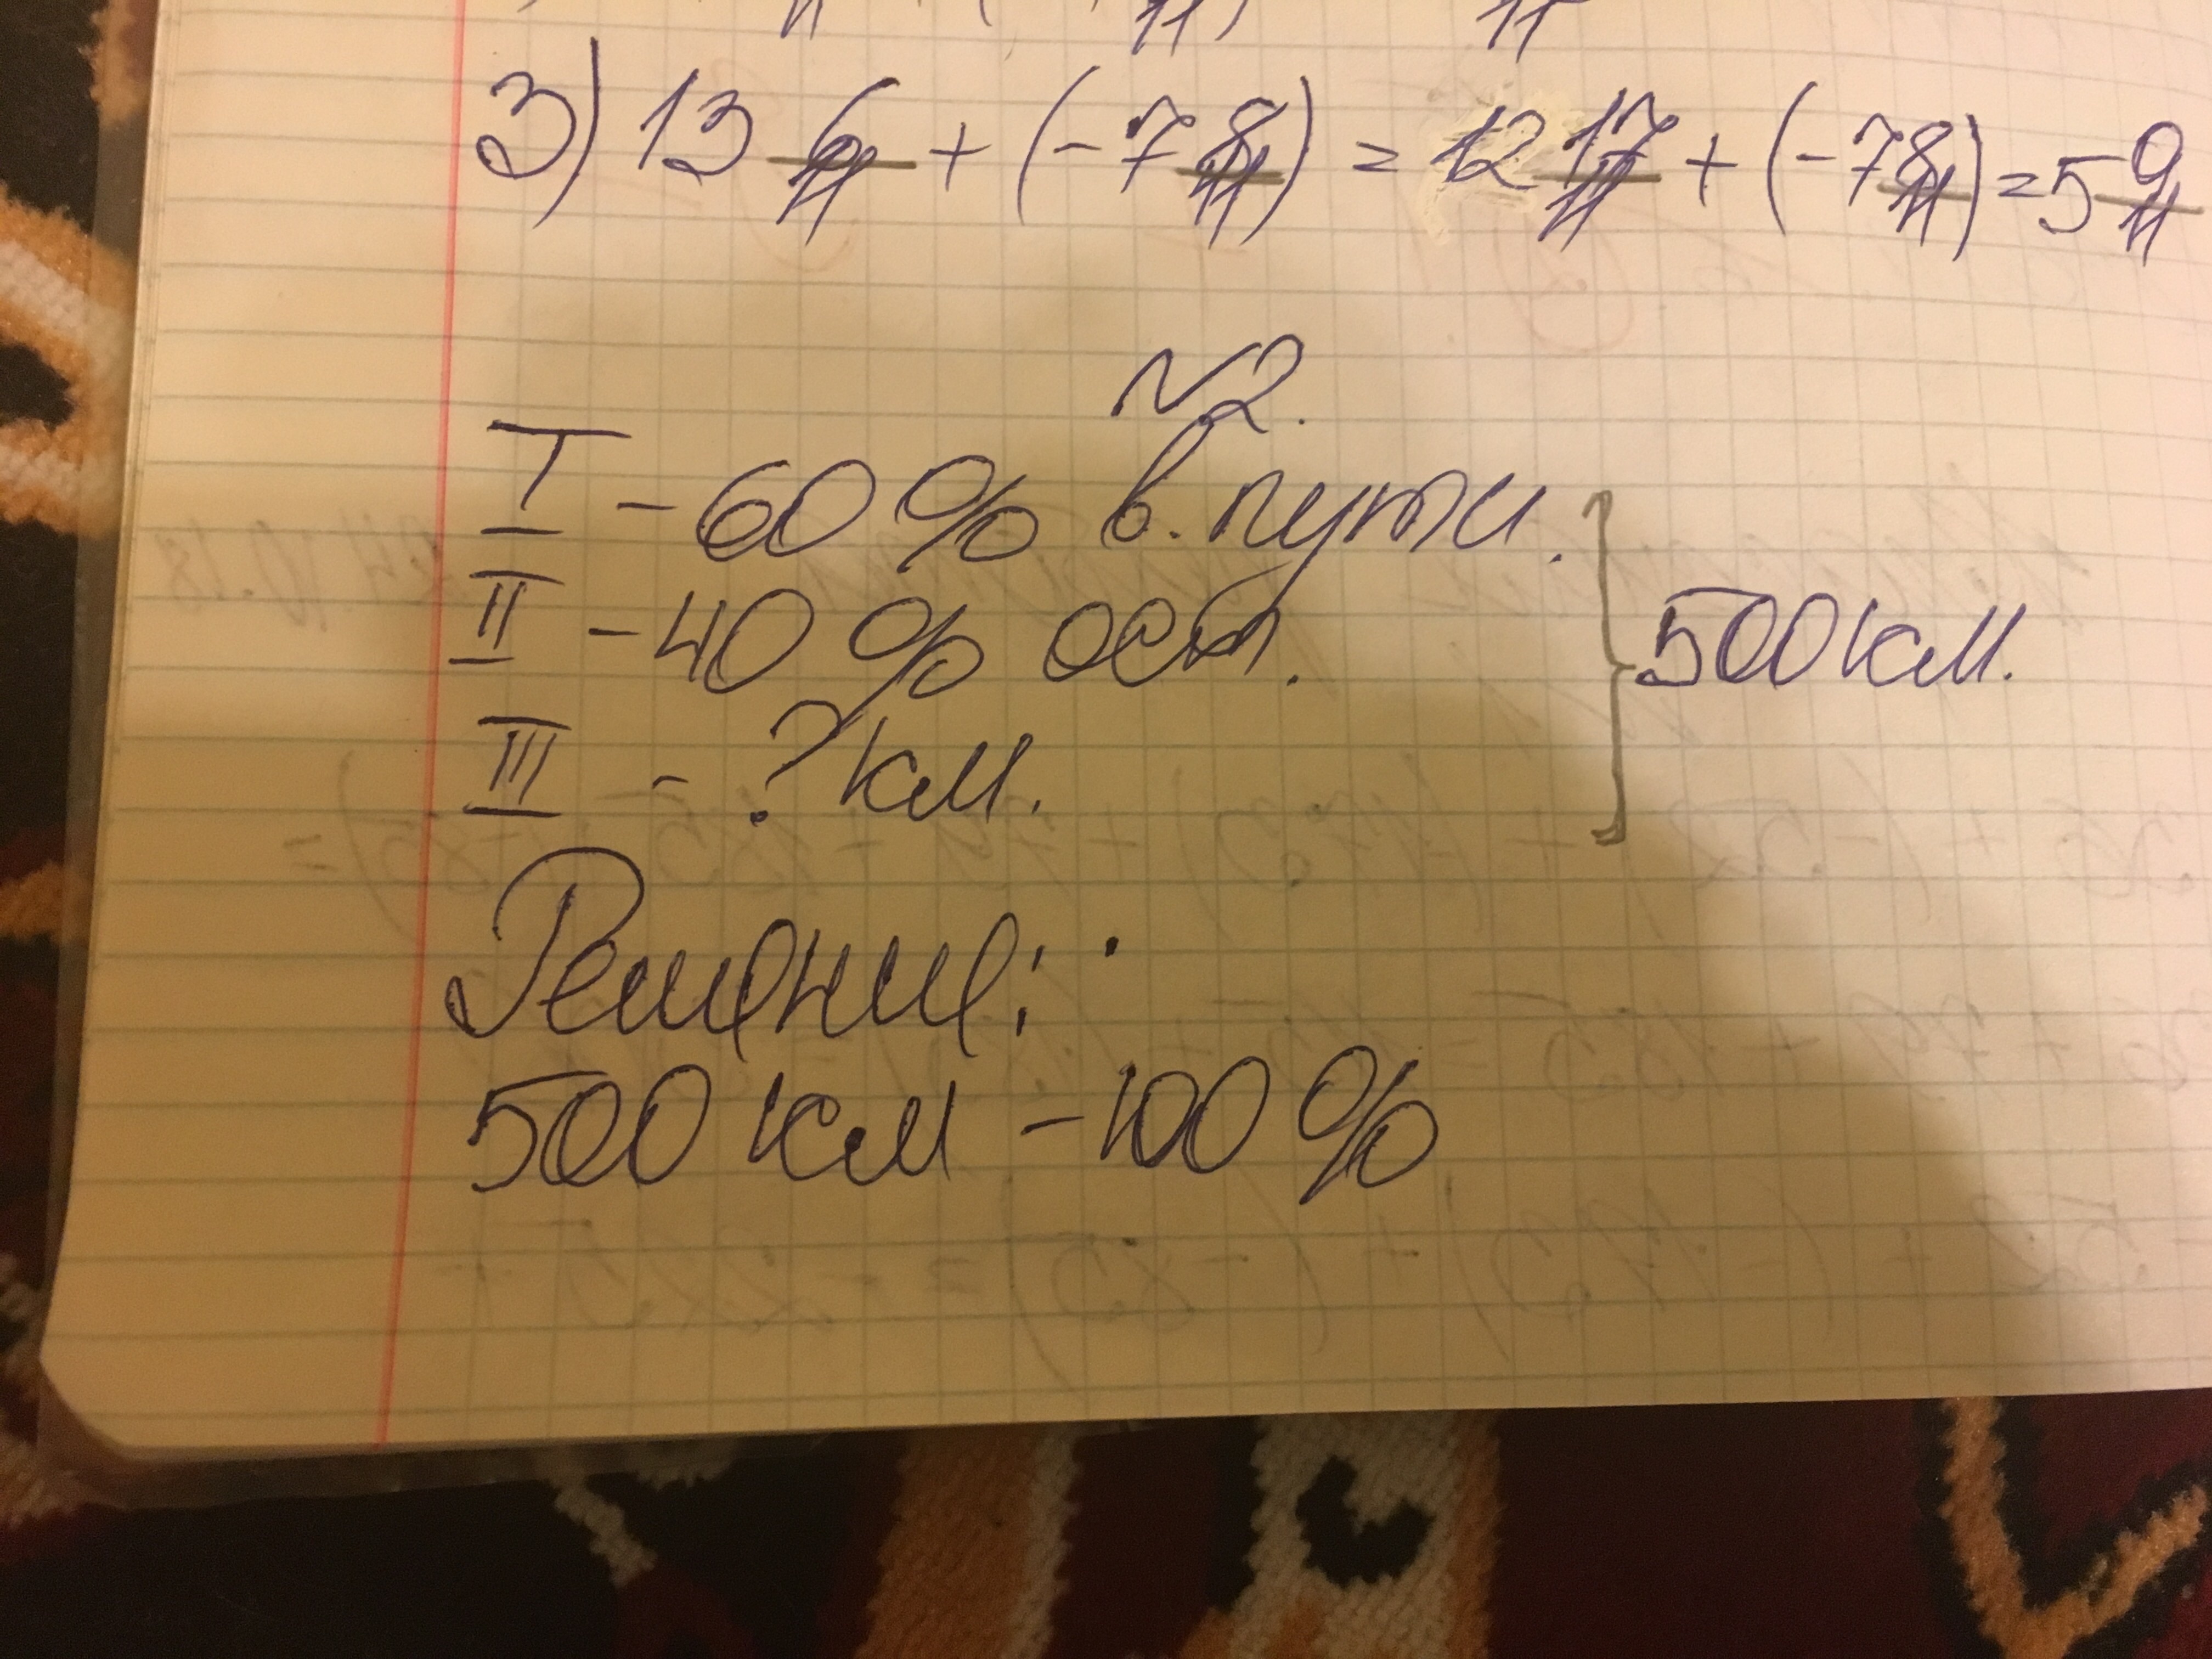 3) 13 6/11 + (-7 8/11) = 12 17/11 + (-7 8/11) = 5 9/11
№2.
I - 60 % в. пути.
II - 40 % ост.
500 км.
III - ? км.
Решение:
500 км - 100 %